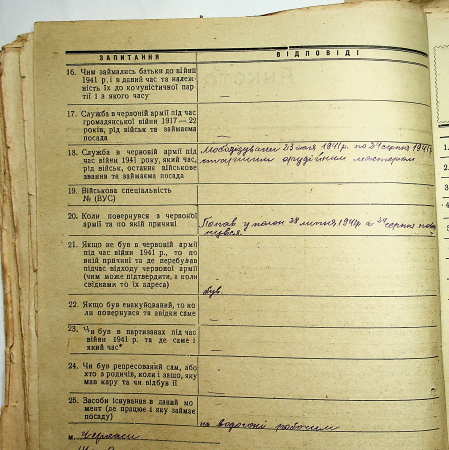 ЗАПИТАННЯ
ВІДПОВІДІ
16. Чим займались батьки до війни
1941 р. і в даний час та належ-
ність їх до комуністичної пар-
тії і з якого часу
17. Служба в червоній армії під час
громадянської війни 1917—22
років, рід військ та займаєма
посада
18. Служба в червоній армії під
час війни 1941 року, який час,
рід військ, останнє військове
звання та займаєма посада
Мобілізували 23 1941р. по 24 серпня 1941р
старшим орудійним мастером
19. Військова спеціальність
№ (ВУС)
20. Коли повернувся в червоної
армії та по якій причині
Попав у полон 28 липня 1941р а 24 серпня
21. Якщо не був в червоній армії
під час війни 1941 р., то по
якій причині та де перебував
підчас відходу червоної армії
(чим може підтвердити, а коли
свідками то їх адреса)
був.
22. Якщо був евакуйований, то ко-
ли повернувся та звідки саме
23. Чи був в партизанах під час
війни 1941 р. та де саме і
який час
24. Чи був репресований сам, або
хто з родичів, коли і защо, яку
мав кару та чи відбув її
25. Засоби існування в даний мо-
мент (де працює і яку займає
посаду)
на водогоні робочим
м. Черкаси